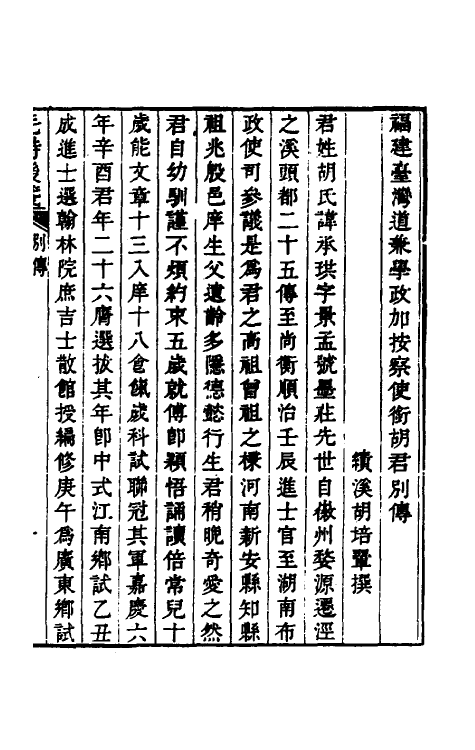 福建臺灣道兼學政加按察使銜胡君別傳
績溪胡培翬撰
君姓胡氏諱承珙字景孟號墨莊先世自徽州婺源遷涇
之溪頭都二十五傳至尚衡順治壬辰進士官至湖南布
政使司參議是爲君之高祖曾祖之棟河南新安縣知縣
祖兆殷邑庠生父遺齡多隱德懿行生君稍晚奇愛之然
君自幼馴謹不煩約束五歲就傅卽穎悟誦讀倍常兒十
歲能文章十三入庠十八食餼歲科試聯冠其軍嘉慶六
年辛酉君年二十六膺選拔其年卽中式江南鄉試乙丑
成進士選翰林院庶吉士散館授編修庚午爲廣東鄉試
毛詩後箋
別傳